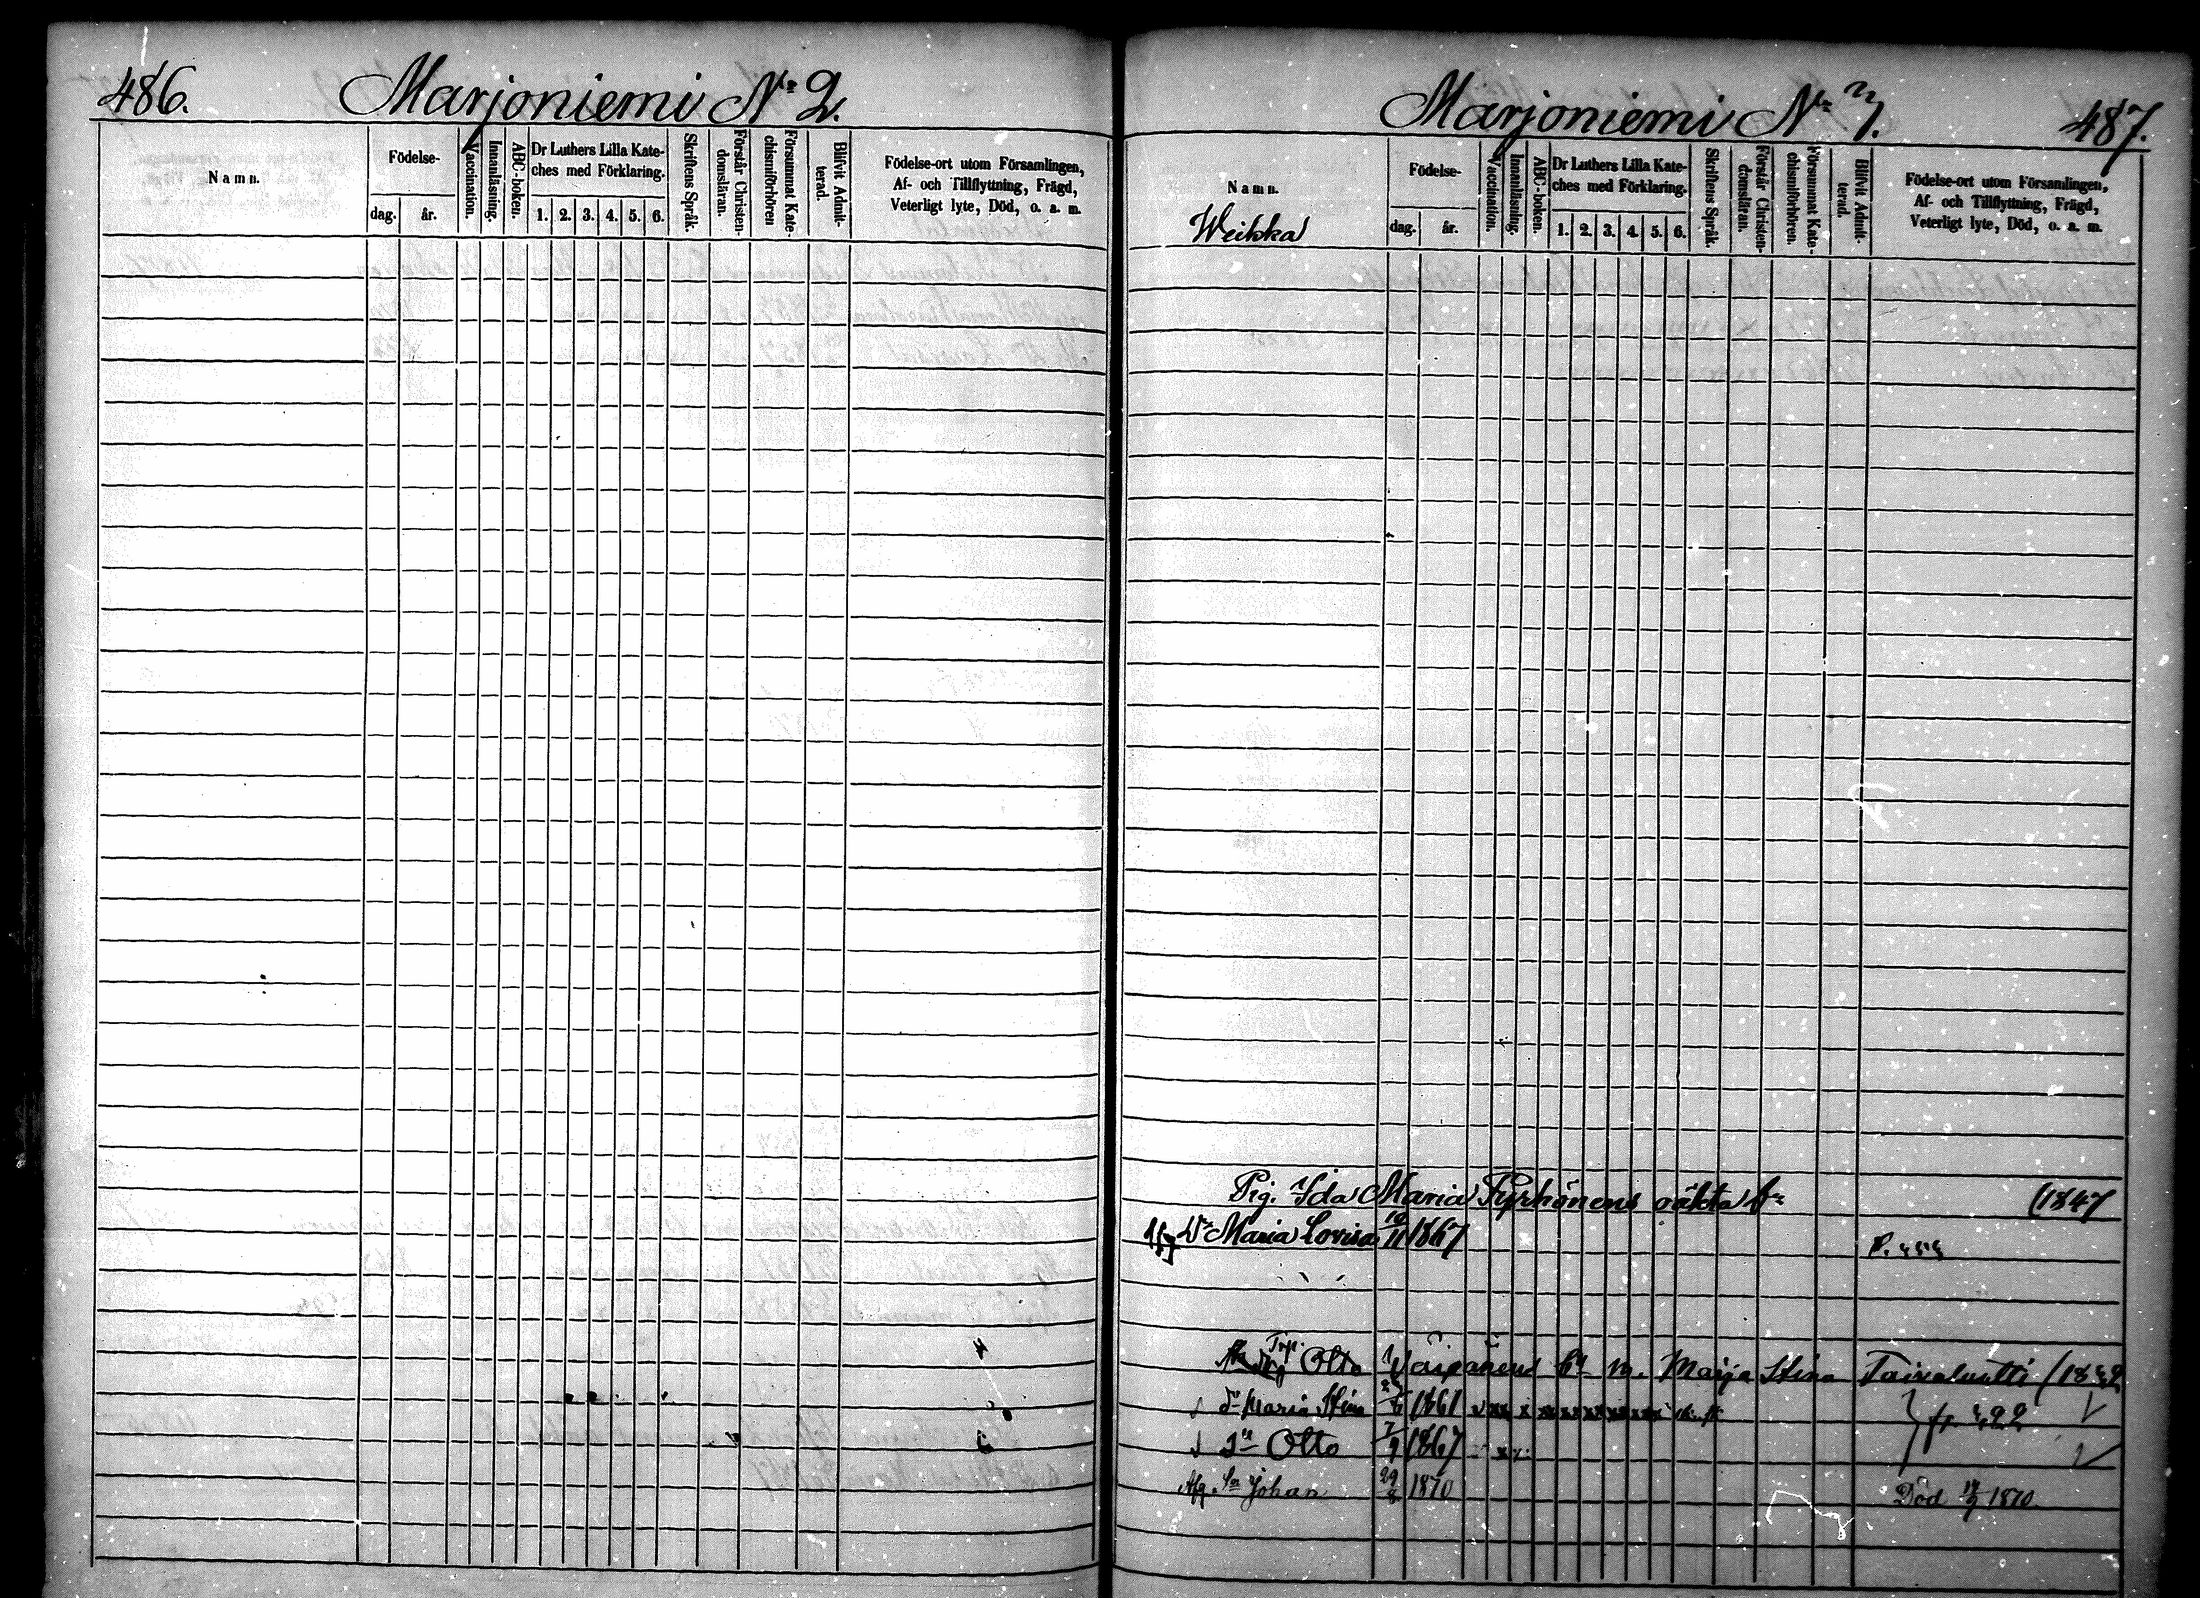 486.
Marjoniemi No 2.
Namn.
Födelse-
dag.
år.
Vaccination.
Innanläsning.
ABC-boken.
Dr Luthers Lilla Kate-
ches med Förklaring.
1. 2. 3. 4. 5. 6.
Skriftens Språk.
Förstår Christen-
domsläran.
Försummat Kate-
chismiförhören
Blifvit Admit-
terad.
Födelse-ort utom Församlingen,
Af- och Tillflyttning, Frägd,
Veterligt lyte, Död, o. a. m.
Marjoniemi No 7.
487.
Namn.
Weikka
Födelse-
dag.
år.
Vaccination.
Innanläsning.
ABC-boken.
Dr Luthers Lilla Kate-
ches med Förklaring.
1. 2. 3. 4. 5. 6.
Skriftens Språk.
Förstår Christen-
domsläran.
Försummat Kate-
chismiförhören.
Blifvit Admit-
terad.
Födelse-ort utom Församlingen,
Af- och Tillflyttning, Frägd,
Veterligt lyte, Död, o. a. m.
Pig. Ida Maria Pyrhönens oäkta (1847
Dr Maria Lovisa 10/11 1867
Otto Väisänens m. Maija Stina (1832
dr Maria Stina 1861
Sn Otto 7/9 1867
Afg. Sn Johan 29/8 1870 Död 1870